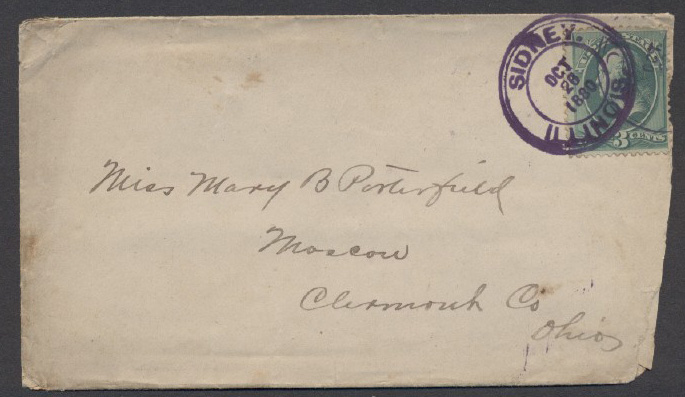 SIDNEY.
OCT
28
1880
ILLINOIS.
3
Miss Mary B Porterfield
Moscow
Clermont Co
Ohio